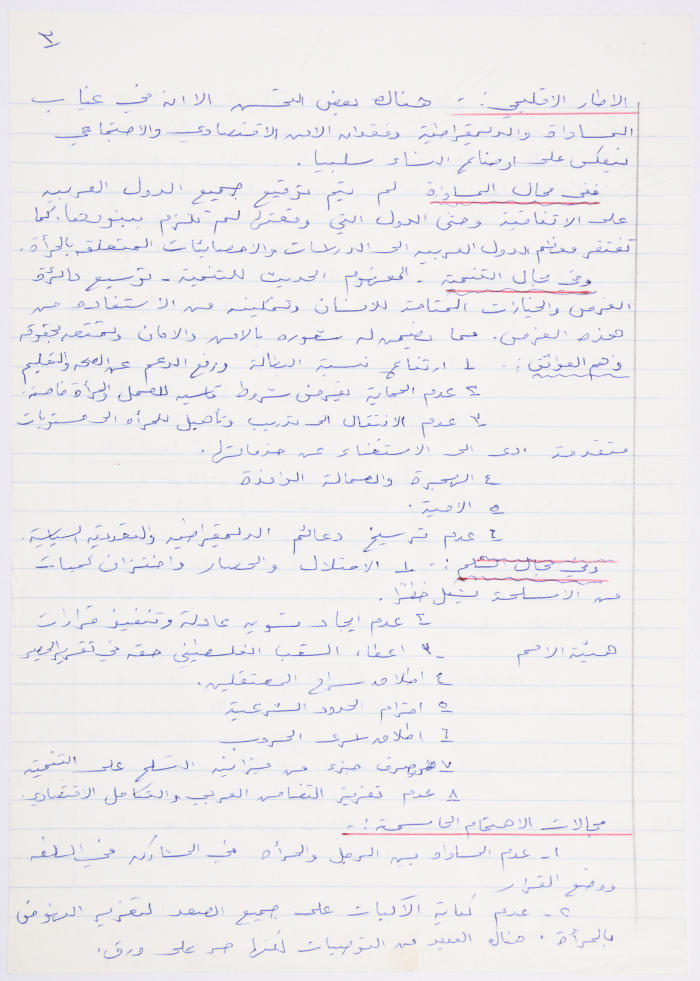 ٣
الاطار الاقليمي :- هناك بعض التحسن الا انه في غياب
المساواة والديمقراطية وفقدان الامن الاقتصادي والاجتماعي
ينعكس على اوضاع النساء سلبيا .
ففي مجال المساواة لم يتم توقيع جميع الدول العربيه
على الاتفاقية وحتى الدول التي وقعتها لم تلزم ببنودها . كما
تفتقر معظم الدول العربيه الى الدراسات والاحصائيات المتعلقه بالمرأة .
وفي مجال التنمية - المفهوم الحديث للتنمية - توسيع دائرة
الفرص والخيارات المتاحة للانسان وتمكينه من الاستفاده من
هذه الفرص . مما يضمن له شعوره بالامن والامان وتمتعه بحقوقه
واهم العوائق :- ١ ارتفاع نسبة البطالة ورفع الدعم عن الصحه والتعليم
٢ عدم الحماية بفرض شروط قاسيه للعمل والمرأة خاصة .
٣ عدم الانتقال الى تدريب وتأهيل للمرأه الى مستويات
متقدمة ادى الى الاستغناء عن خدماتها .
٤ الهجرة والعمالة الوافدة
٥ الامية .
٦ عدم ترسيخ دعائم الديمقراطيه والتعددية السياسية .
وفي مجال السلم :- ١ الاحتلال والحصار واختزان كميات
من الأسلحة يشكل خطرًا .
٢ عدم ايجاد تسويه عادلة وتنفيذ قرارات
هيئة الامم ٣ اعطاء الشعب الفلسطيني حقه في تقرير المصير
٤ اطلاق سراح المعتقلين .
٥ احترام الحدود الشرعية
٦ اطلاق اسرى الحروب
٧ صرف جزء من ميزانية التسلح على التنمية
٨ عدم تعزيز التضامن العربي والتكامل الاقتصادي .
مجالات الاهتمام الحاسمة :-
١- عدم المساواه بين الرجل والمرأه في المشاركه في السلطه
ووضع القرار
٢- عدم كفاية الآليات على جميع الصعد لتعزيز النهوض
بالمرأة . هناك العديد من التوصيات لكنها حبر على ورق .